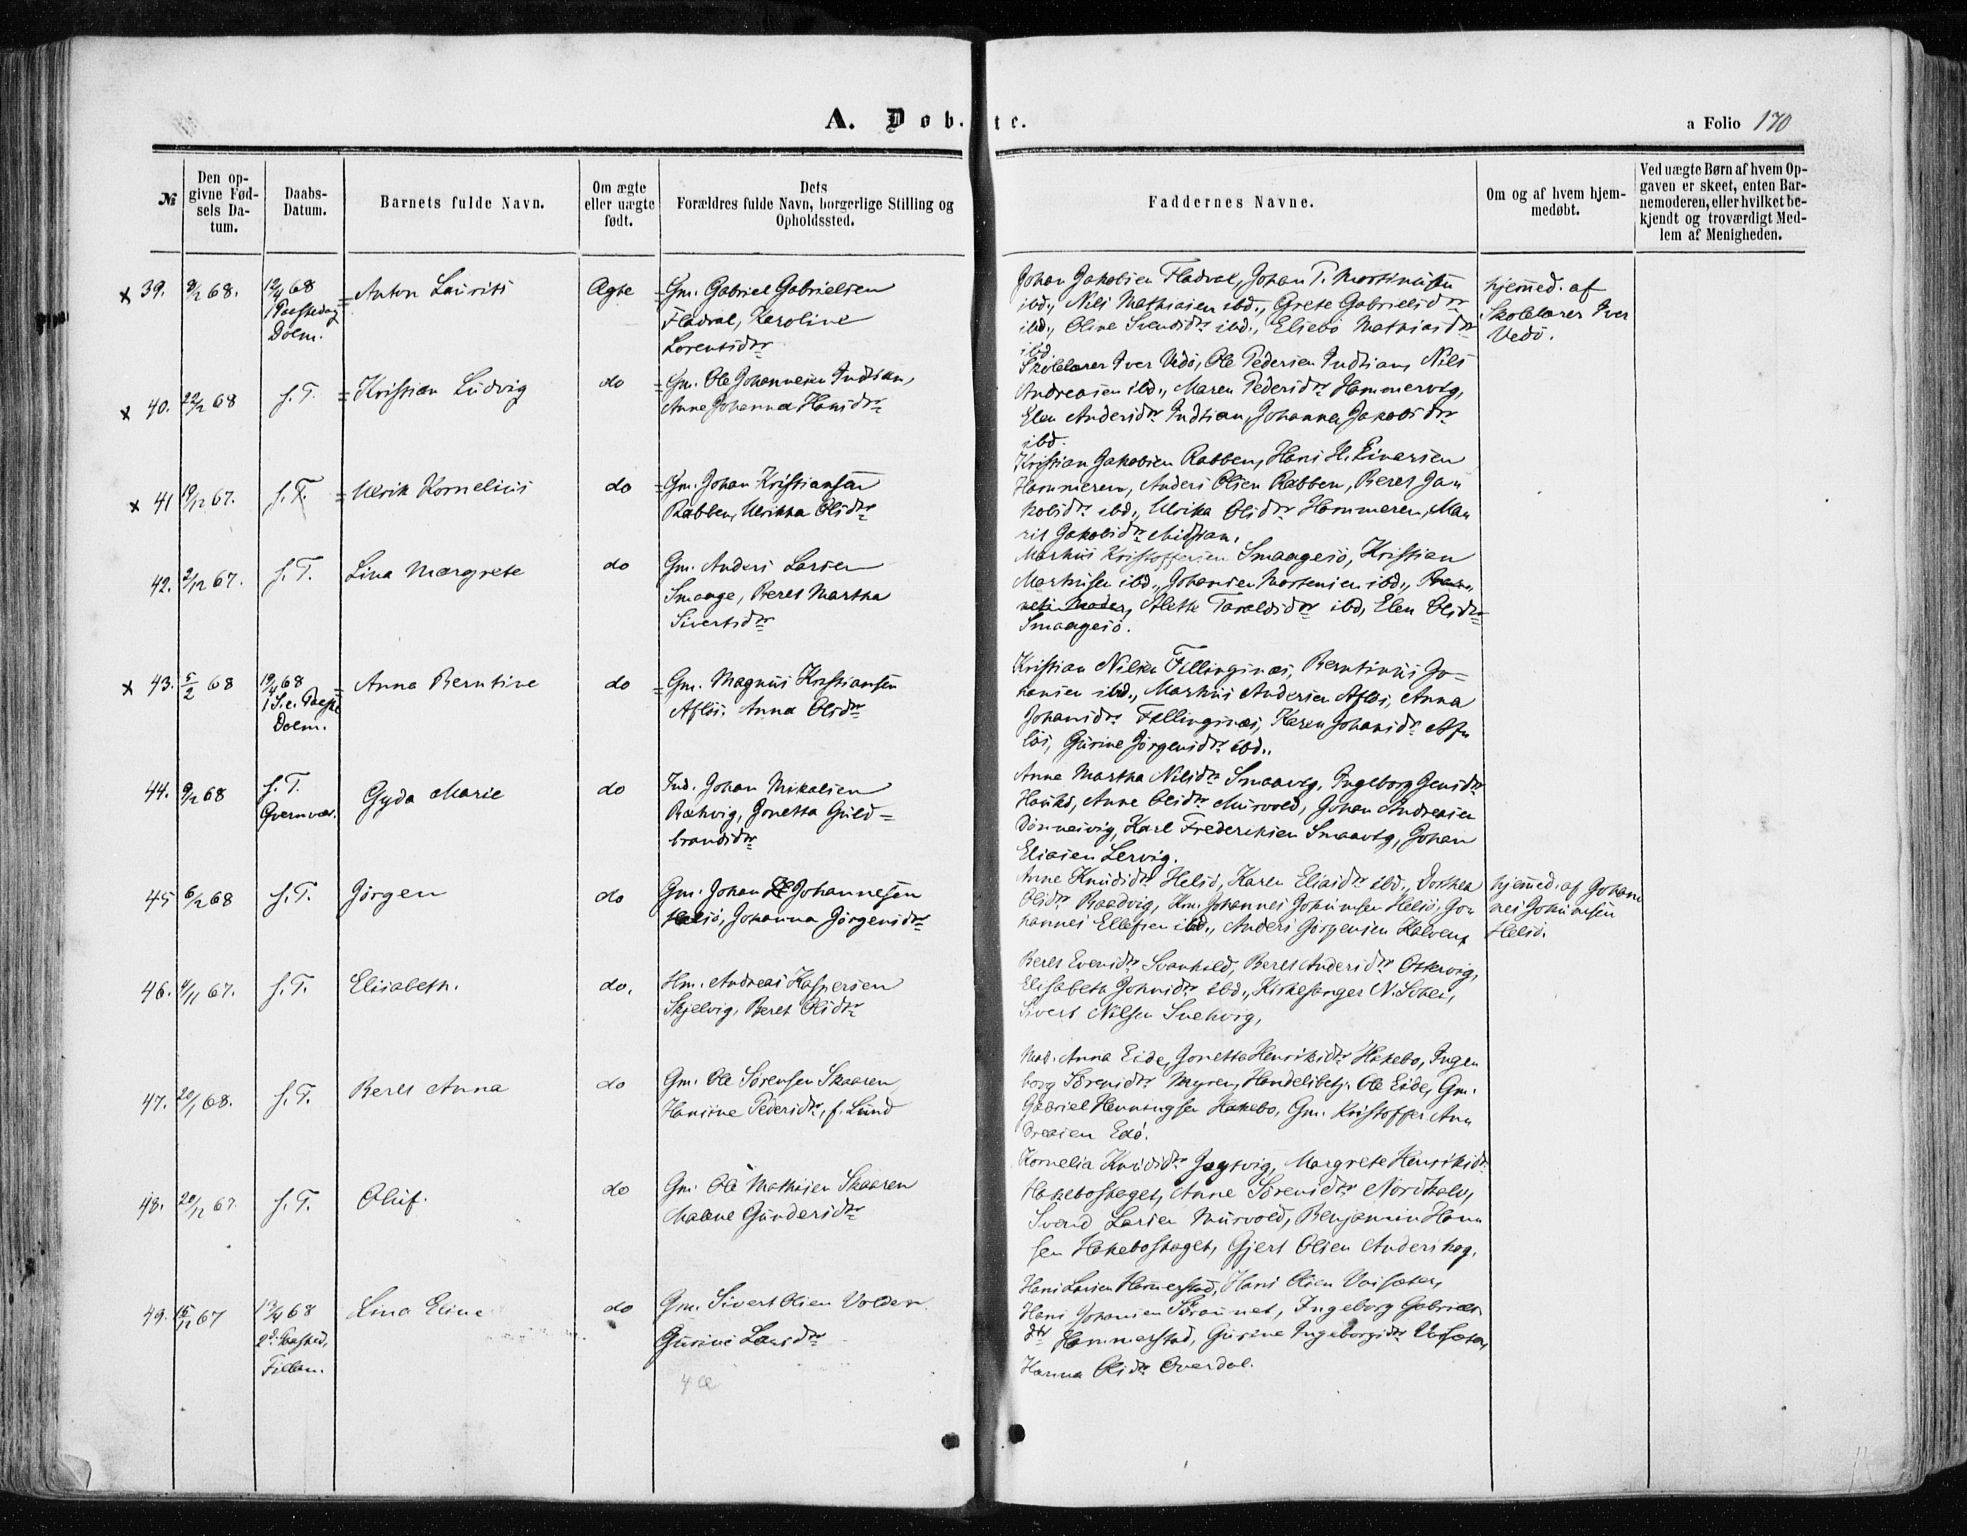 A. Døbte.
a Folio 170
№
Den opgivne Fødsels Datum.
Daabs-Datum.
Barnets fulde Navn.
Om ægte eller uægte født.
Dets Forældres fulde Navn, borgerlige Stilling og Opholdssted.
Faddernes Navne.
Om og af hvem hjemmedøbt.
Ved uægte Børn af hvem Opgaven er skeet, enten Barnemoderen, eller hvilket bekjendt og troværdigt Medlem af Menigheden.
x 39. 9/2 68.
12/4 68
1 Paaskedag
Dolm.
Anton Laurits
Ægte
Gm. Gabriel Gabrielsen
Fladval, Karoline
Lorentsdtr
Johan Jakobsen Fladval, Johan T. Mortinusen
ibd., Nils Mathiasen ibd., Grete Gabrielsdtr
ibd., Oline Svendsdtr ibd., Elsebo Mathiasdtr
ibd
hjemmed. af
Skolelærer Iver
Vedø.
x 40. 22/2 68
s. T.
Kristian Ludvig
do
Gm. Ole Johannesen Indtian,
Anne Johanna Hansdtr
Skolelærer Iver Vedø, Ole Pedersen Indtian, Nils
Andreasen ibd., Maren Pedersdtr Hammervig,
Elen Andersdtr Indtian, Johanna Jakobsdtr
ibd.
x 41 19/12 67.
s. T.
Ulrik Kornelius
do
Gm. Johan Kristiansen
Rabben, Ulrikka Olsdtr
Kristian Jakobsen Rabben, Hans H. Einarsen
Hammeren, Anders Olsen Rabben, Beret Ja-
kobsdtr ibd., Ulrika Olsdtr Hammeren, Ma-
rit Jakobsdtr
42. 2/12 67.
s. T.
Lina Margrete
do
Gm. Anders Larsen
Smaage, Beret Martha
Sivertsdtr
Markus Kristoffersen Smaagesø, Kristian
Markusen ibd., Johansen Mortensen ibd., Bar-
nets Moder, Alette Taraldsdtr ibd, Elen Olsdtr
Smaagesø.
x 43. 5/2 68
19/4 68
1 S. e. Paaske
Dolm.
Anna Berntine
do
Gm. Magnus Kristiansen
Afløs. Anna Olsdtr
Kristian Nilsen Fillingsnæs, Berntinus Jo-
hansen ibd., Markus Andersen Afløs, Anna
Johansdtr Fillingsnæs, Karen Johansdtr Af-
løs, Gurine Jørgensdtr ibd.
44. 9/2 68
s. T.
Qvenvær.
Gyda Marie
do
Ind. Johan Mikalsen
Bakvig, Jonetta Guld-
brandsdtr
Anne Martha Nilsdtr Smaavig, Ingeborg Jensdtr
Anne Olsdtr Mursvold, Johan Andreasen
Karl Frederiksen Smaavig, Johan
Eliasen Lervig.
45 6/2 68
s. T.
Jørgen
do
Gm. Johan Johannesen
Helsø, Johanna Jørgensdtr
Anne Knudsdtr Helsø, Karen Eliasdtr ibd., Dorthea
Olsdtr Baadvig, Km. Johannes Johnsen Helsø, Jo-
hannes Ellefsen ibd., Anders Jørgensen Kalven,
hjemmed. af Johan-
nes Johnsen
Helsø.
46. 4/11 67.
s. T.
Elisabeth.
do.
Hm. Andreas Kaspersen
Skjelvig, Beret Olsdtr
Beret Evensdtr Svanhild, Beret Andersdtr Ottervig,
Elisabeth Johnsdtr ibd., Kirkesanger N.
Sivert Nilsen
47. 20/1 68.
s. T.
Beret Anna
do
Gm. Ole Sørensen Skaaren
Hansine Pedersdtr, f. Lund
Mad. Anna Eide, Jonetta Henriksdtr Hakebo, Inge-
borg Sørensdtr Myren, Handelsbetj. Ole Eide, Gm.
Gabriel Henningsen Hakebo, Gm. Kristoffer An-
dreasen Edø.
48. 20/12 67.
s. T.
Oluf.
do
Gm. Ole Mathisen Skaaren
Malene Gundersdtr
Kornelia Knudsdtr Jøgtvig, Margrete Henriksdtr
Hakeboskaget, Anne Sørensdtr Nordkalv,
Svend Larsen Mursvold, Benjamin Han-
sen Hakeboskaget, Gjert Olsen Anderskog.
49. 15/12 67
13/4 68
2d. Paasked,
Fillan.
Lina Eline
do
Gm. Sivert Olsen Volden
Gurine Larsdtr
Hans Larsen Hammerstad, Hans Olsen
Hans Johansen Straumet, Ingeborg Gabriels-
dtr Hammerstad, Gurine Ingebrigtsdtr
Hanna Olsdtr Overdal.